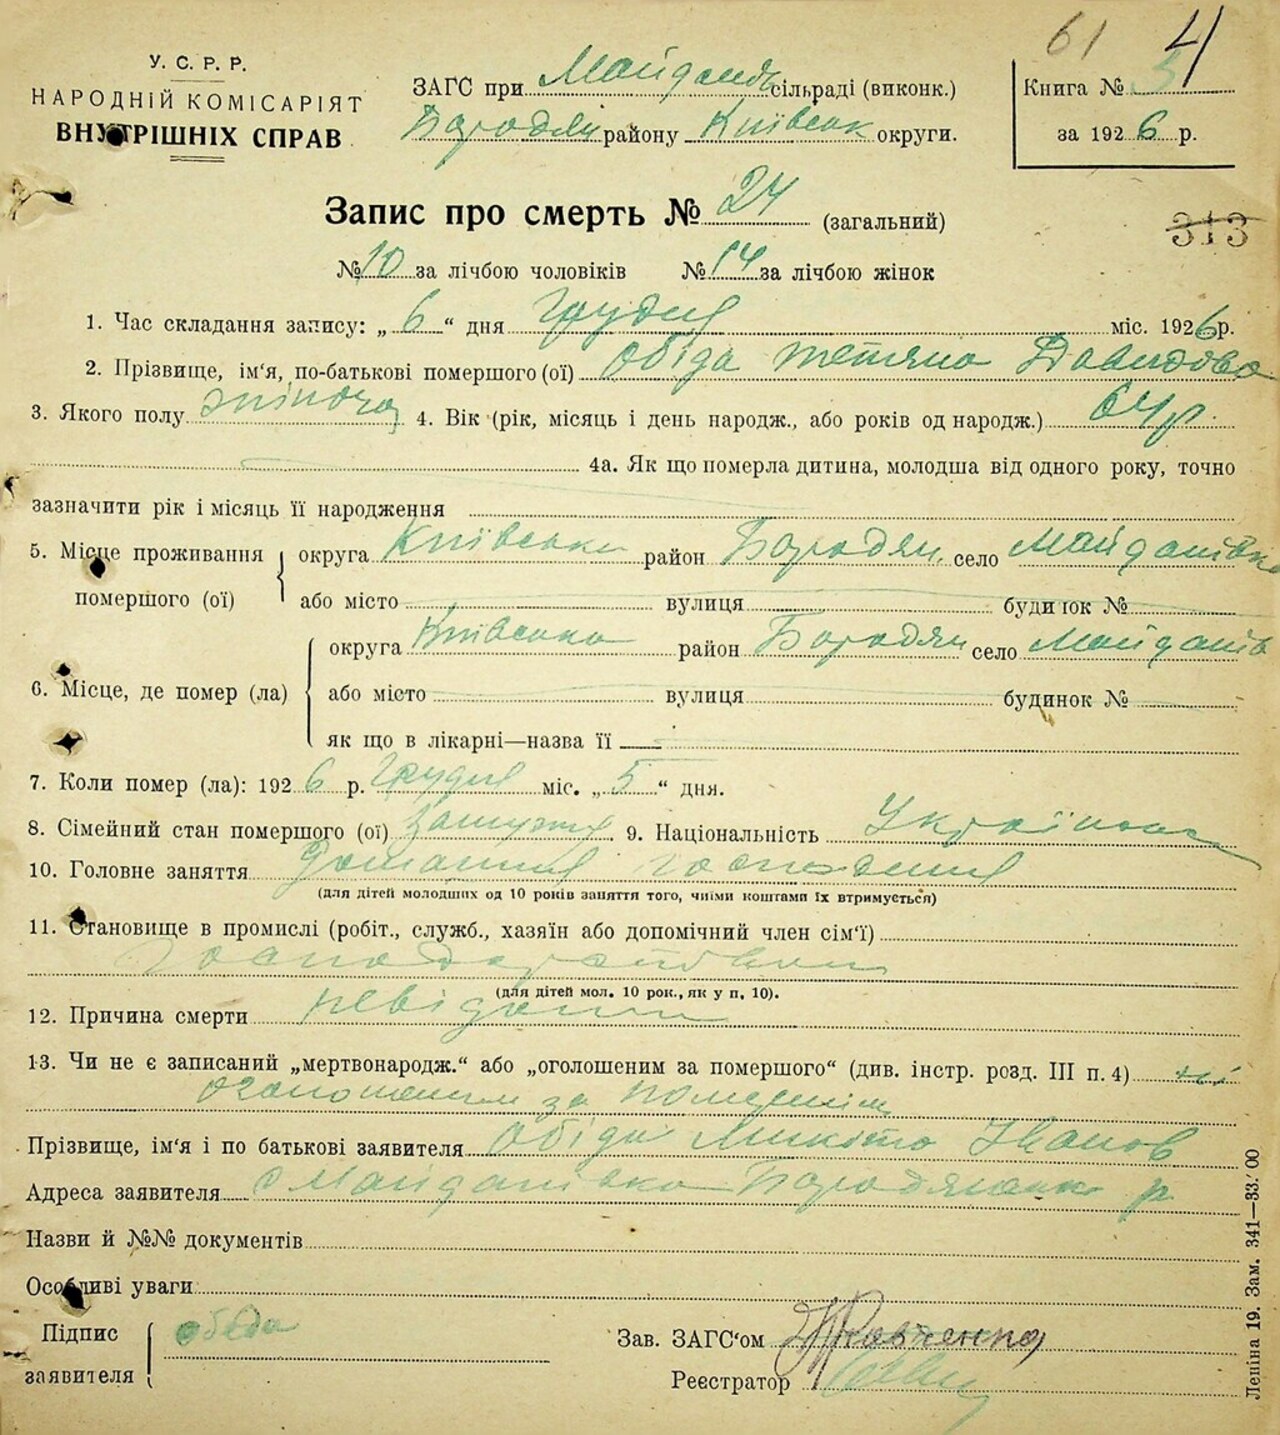 61 4
У. С. Р. Р.
НАРОДНІЙ КОМІСАРІЯТ
ВНУТРІШНІХ СПРАВ
ЗАГС при Майданів сільраді (виконк.)
Бородян району Київськ округи.
Книга №
за 1926 р.
Запис про смерть № 24 (загальний)
313
№ 10 за лічбою чоловіків № 14 за лічбою жінок
1. Час складання запису: „ 6 “ дня Грудня міс. 1926 р.
2. Прізвище, ім'я, по-батькові помершого (ої) Обіда Тетяна Давидова
3. Якого полу жіноча 4. Вік (рік, місяць і день народж., або років од народж.) 64 р.
4а. Як що померла дитина, молодша від одного року, точно
зазначити рік і місяць її народження
5. Місце проживання помершого (ої) округа Київська район Бородян. село Майданівка
або місто вулиця будинок №
6. Місце, де помер (ла) округа Київська район Бородян село Майданів
або місто вулиця будинок №
як що в лікарні—назва її
7. Коли помер (ла): 1926 р. Грудня міс. „ 5 “ дня.
8. Сімейний стан помершого (ої) Замужня 9. Національність Українка
10. Головне заняття Домашня господиня
(для дітей молодших од 10 років заняття того, чиїми коштами їх втримується)
11. Становище в промислі (робіт., служб., хазяїн або допомічний член сім'ї)
(для дітей мол. 10 рок., як у п. 10).
12. Причина смерти невідома
13. Чи не є записаний „мертвонародж.“ або „оголошеним за помершого“ (див. інстр. розд. III п. 4) ні
оголошеним за
Прізвище, ім'я і по батькові заявителя Обіда Микита Іванов
Адреса заявителя с Майданівка Бородянськ р
Назви й №№ документів
Особливі уваги
Підпис заявителя обеда
Зав. ЗАГС'ом
Реєстратор
Леніна 19. Зам. 341—33.00